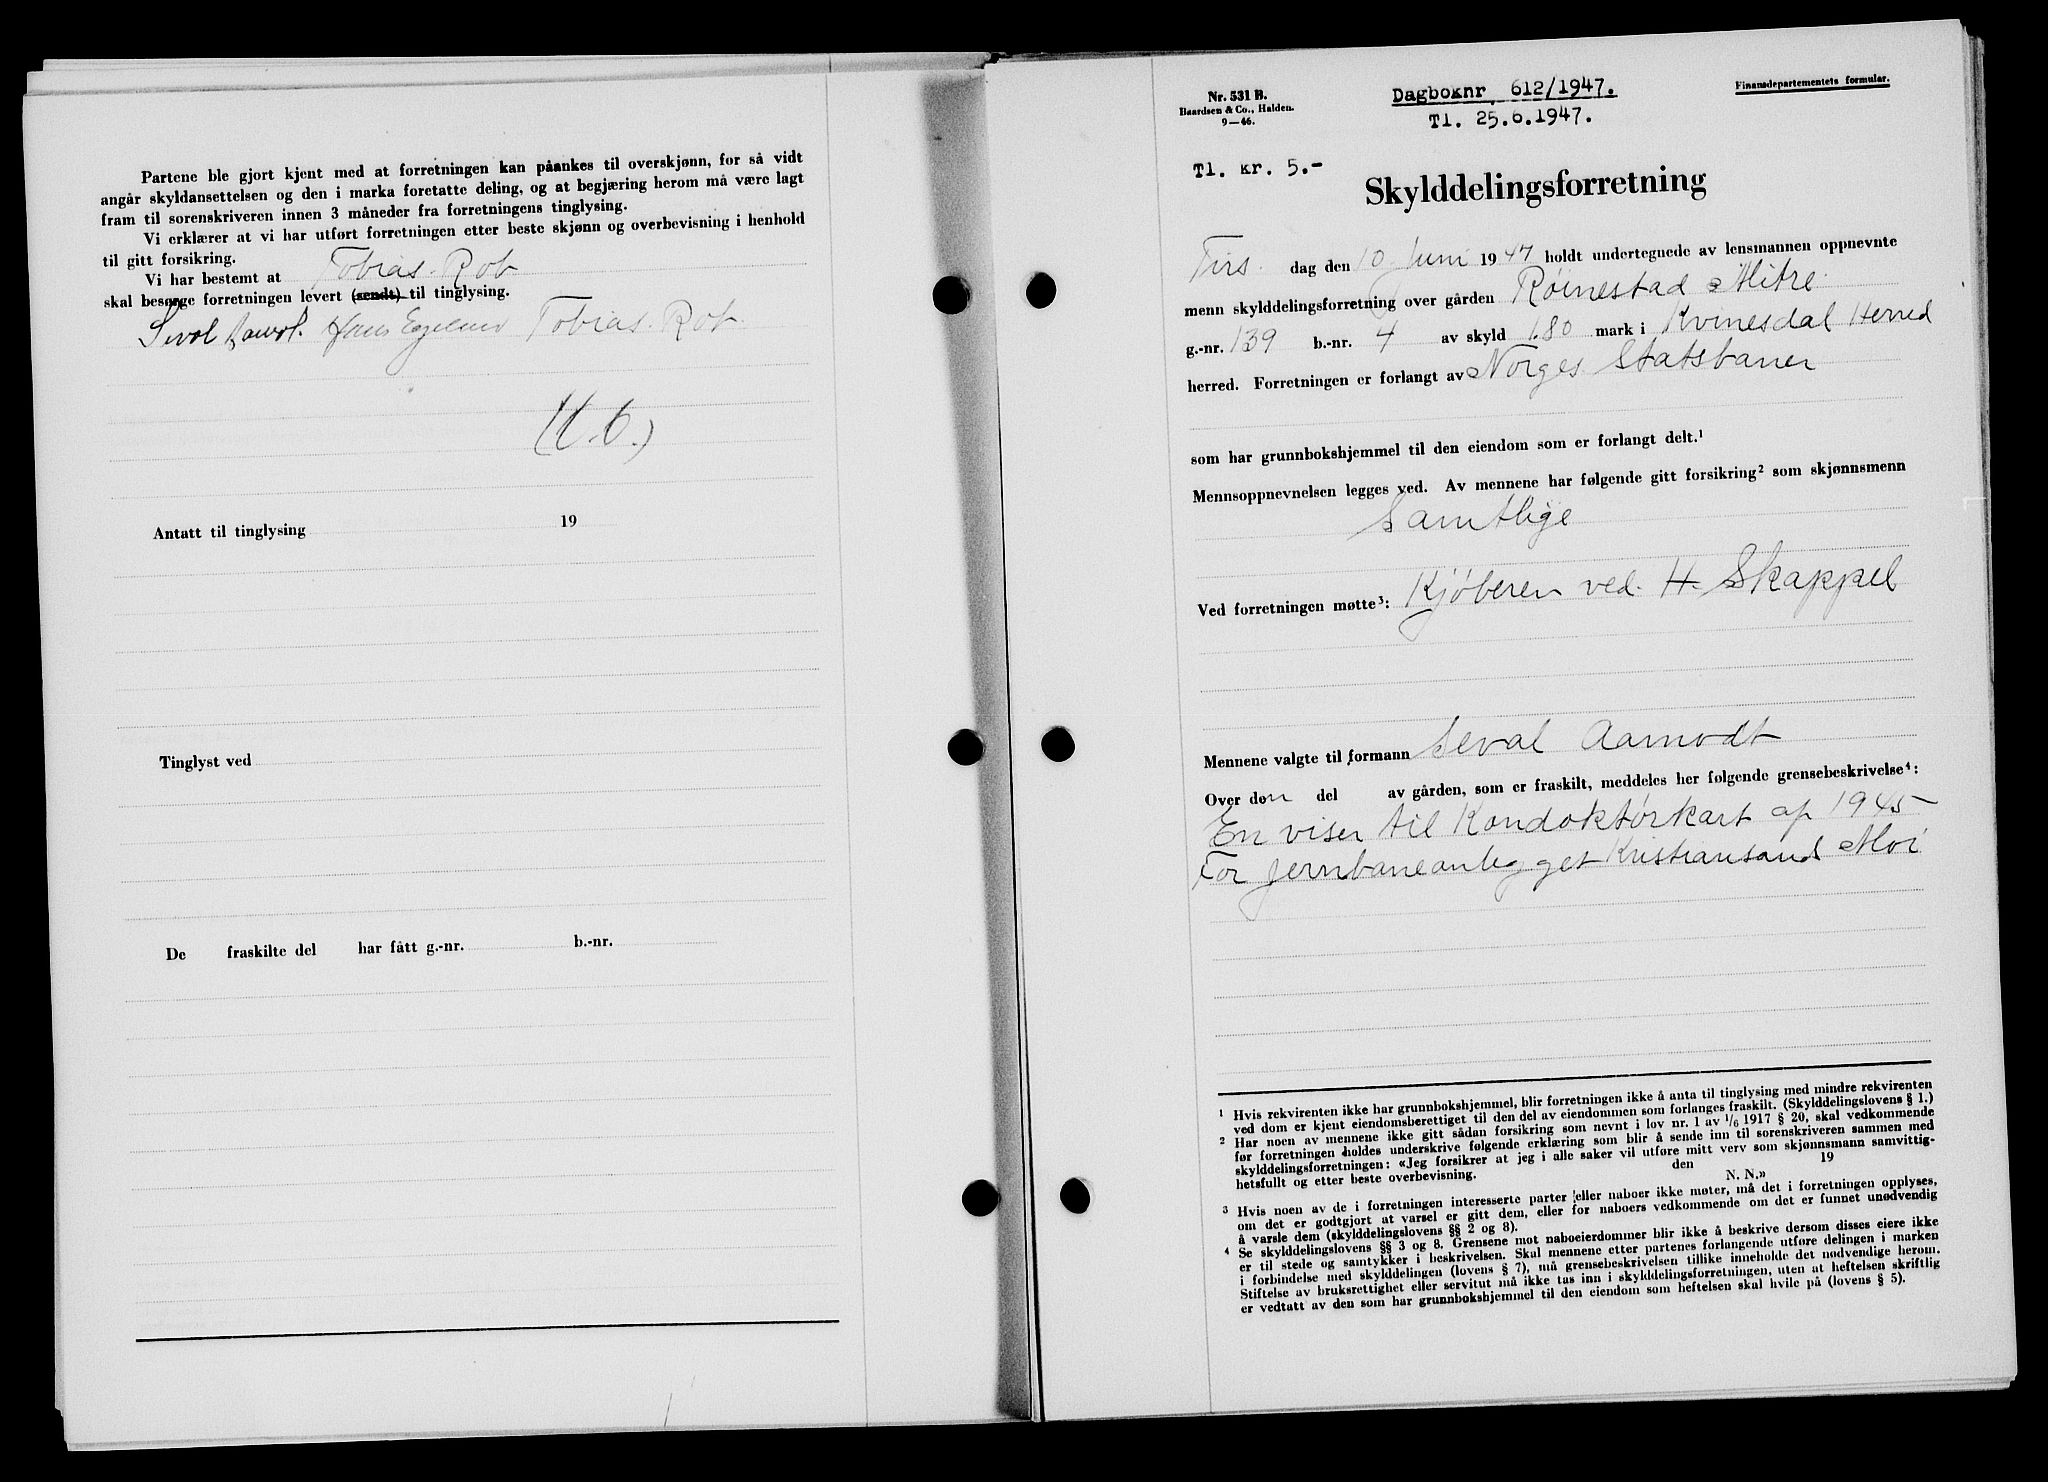 Partene ble gjort kjent med at forretningen kan påankes til overskjønn, for så vidt
angår skyldansettelsen og den i marka foretatte deling, og at begjæring herom må være lagt
fram til sorenskriveren innen 3 måneder fra forretningens tinglysing.
Vi erklærer at vi har utført forretningen etter beste skjønn og overbevisning i henhold
til gitt forsikring.
Vi har bestemt at Tobias Rob
skal besørge forretningen levert (sendt) til tinglysing.
Hans Egeland Tobias Rob.
Antatt til tinglysing 19
Tinglyst ved
De fraskilte del har fått g.-nr. b.-nr.
Nr. 531 B.
Baardsen & Co., Halden.
9—46.
Dagboknr 612/1947.
Tl. 25.6.1947.
Finansdepartementets formular.
Tl. kr. 5.-
Skylddelingsforretning
Tirs. dag den 10 Juni 1947 holdt undertegnede av lensmannen oppnevnte
menn skylddelingsforretning over gården Røinestad Mitre
g.-nr. 139 b.-nr. 4 av skyld 1.80 mark i Kvinesdal Herred
herred. Forretningen er forlangt av Norges Statsbaner
som har grunnbokshjemmel til den eiendom som er forlangt delt.¹
Mennsoppnevnelsen legges ved. Av mennene har følgende gitt forsikring² som skjønnsmenn
Samtlige
Ved forretningen møtte³: Kjøberen ved. H Skappel
Mennene valgte til formann Seval Aamodt
Over den del av gården, som er fraskilt, meddeles her følgende grensebeskrivelse⁴:
En viser til Kondoktørkart af 1945
For jernbaneanlegget Kristiansand Moi
¹ Hvis rekvirenten ikke har grunnbokshjemmel, blir forretningen ikke å anta til tinglysing med mindre rekvirenten
ved dom er kjent eiendomsberettiget til den del av eiendommen som forlanges fraskilt. (Skylddelingslovens § 1.)
² Har noen av mennene ikke gitt sådan forsikring som nevnt i lov nr. 1 av 1/6 1917 § 20, skal vedkommende
før forretningen holdes underskrive følgende erklæring som blir å sende inn til sorenskriveren sammen med
skylddelingsforretningen: «Jeg forsikrer at jeg i alle saker vil utføre mitt verv som skjønnsmann samvittig-
hetsfullt og etter beste overbevisning. den 19
N. N.»
³ Hvis noen av de i forretningen interesserte parter eller naboer ikke møter, må det i forretningen opplyses,
om det er godtgjort at varsel er gitt dem, eller for naboers vedkommende om det er funnet unødvendig
å varsle dem (skylddelingslovens §§ 2 og 8).
⁴ Se skylddelingslovens §§ 3 og 8. Grensene mot naboeierdommer blir ikke å beskrive dersom disses eiere ikke
er til stede og samtykker i beskrivelsen. Skal mennene etter partenes forlangende utføre delingen i marken
i forbindelse med skylddelingen (lovens § 7), må grensebeskrivelsen tillike inneholde det nødvendige herom.
Stiftelse av bruksrettighet eller servitut må ikke tas inn i skylddelingsforretningen, uten at heftelsen skriftlig
er vedtatt av den som har grunnbokshjemmel til den eiendom som heftelsen skal hvile på (lovens § 5).